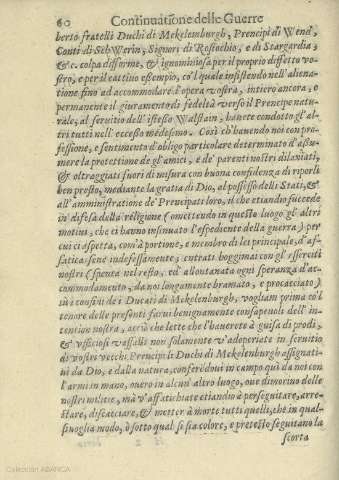 60 Continuatione delle Guerre
berto fratelli Duchi di Mekelemburgh, Prencipi di Wend,
Conti di SchWerin, Signori di Rostochio, e di Stargardia;
& c. colpa difforme, & ignominiosa per il proprio diffetto vo-
stro, e per il cattiuo essempio, co'l quale insistendo nell'aliena-
tione fino ad accommodare l'opera vostra, intiero ancora, e
permanente il giuramento di fedeltà verso il Prencipe natu-
rale, al seruitio dell'istesso Walstain, hauete condotto gl'al-
tri tutti nell'eccesso medesmo. Così ch'hauendo noi con pro-
fessione, e sentimento d'obligo particolare determinato d'assu-
mere la protettione de gl'amici, e de' parenti nostri dilaniati,
& oltraggiati fuori di misura con buona confidenza di riporli
ben presto, mediante la gratia di Dio, al possesso delli Stati, &
all'amministratione de' Principati loro, il che etiandio succede
in difesa della religione (omettendo in questo luogo gl'altri
motiui, che ci hanno insinuato l'espediente della guerra) per
cui ci aspetta, com'à portione, e membro di lei principale, d'af-
fatica sene indefessamente; entrati hoggimai con gl'esserciti
nostri (spenta nel resto, ed allontanata ogni speranza d'ac-
commodamento, da noi longamente bramato, e procacciato)
sù i confini de i Ducati di Mekelenburgh, vogliam prima co'l
tenore delle presenti farui benignamente consapeuoli dell'in-
tention nostra, acciò che lette che l'hauerete à guisa di prodi,
& vfficiosi vassalli non solamente v'adoperiate in seruitio
di vostri vecchi Principi li Duchi di Mekelenburgh assignati-
ui da Dio, e dalla natura, conferendoui in campo quà da noi con
l'armi in mano, ouero in alcun altro luogo, oue dimorino delle
nostri militie, mà v'affatichiate etiandio à perseguitare, arre-
stare, discacciare, & metter à morte tutti quelli, che in qual-
siuoglia modo, ò sotto qual si sia colore, e pretesto seguitano la
scorta
Colección ABANCA